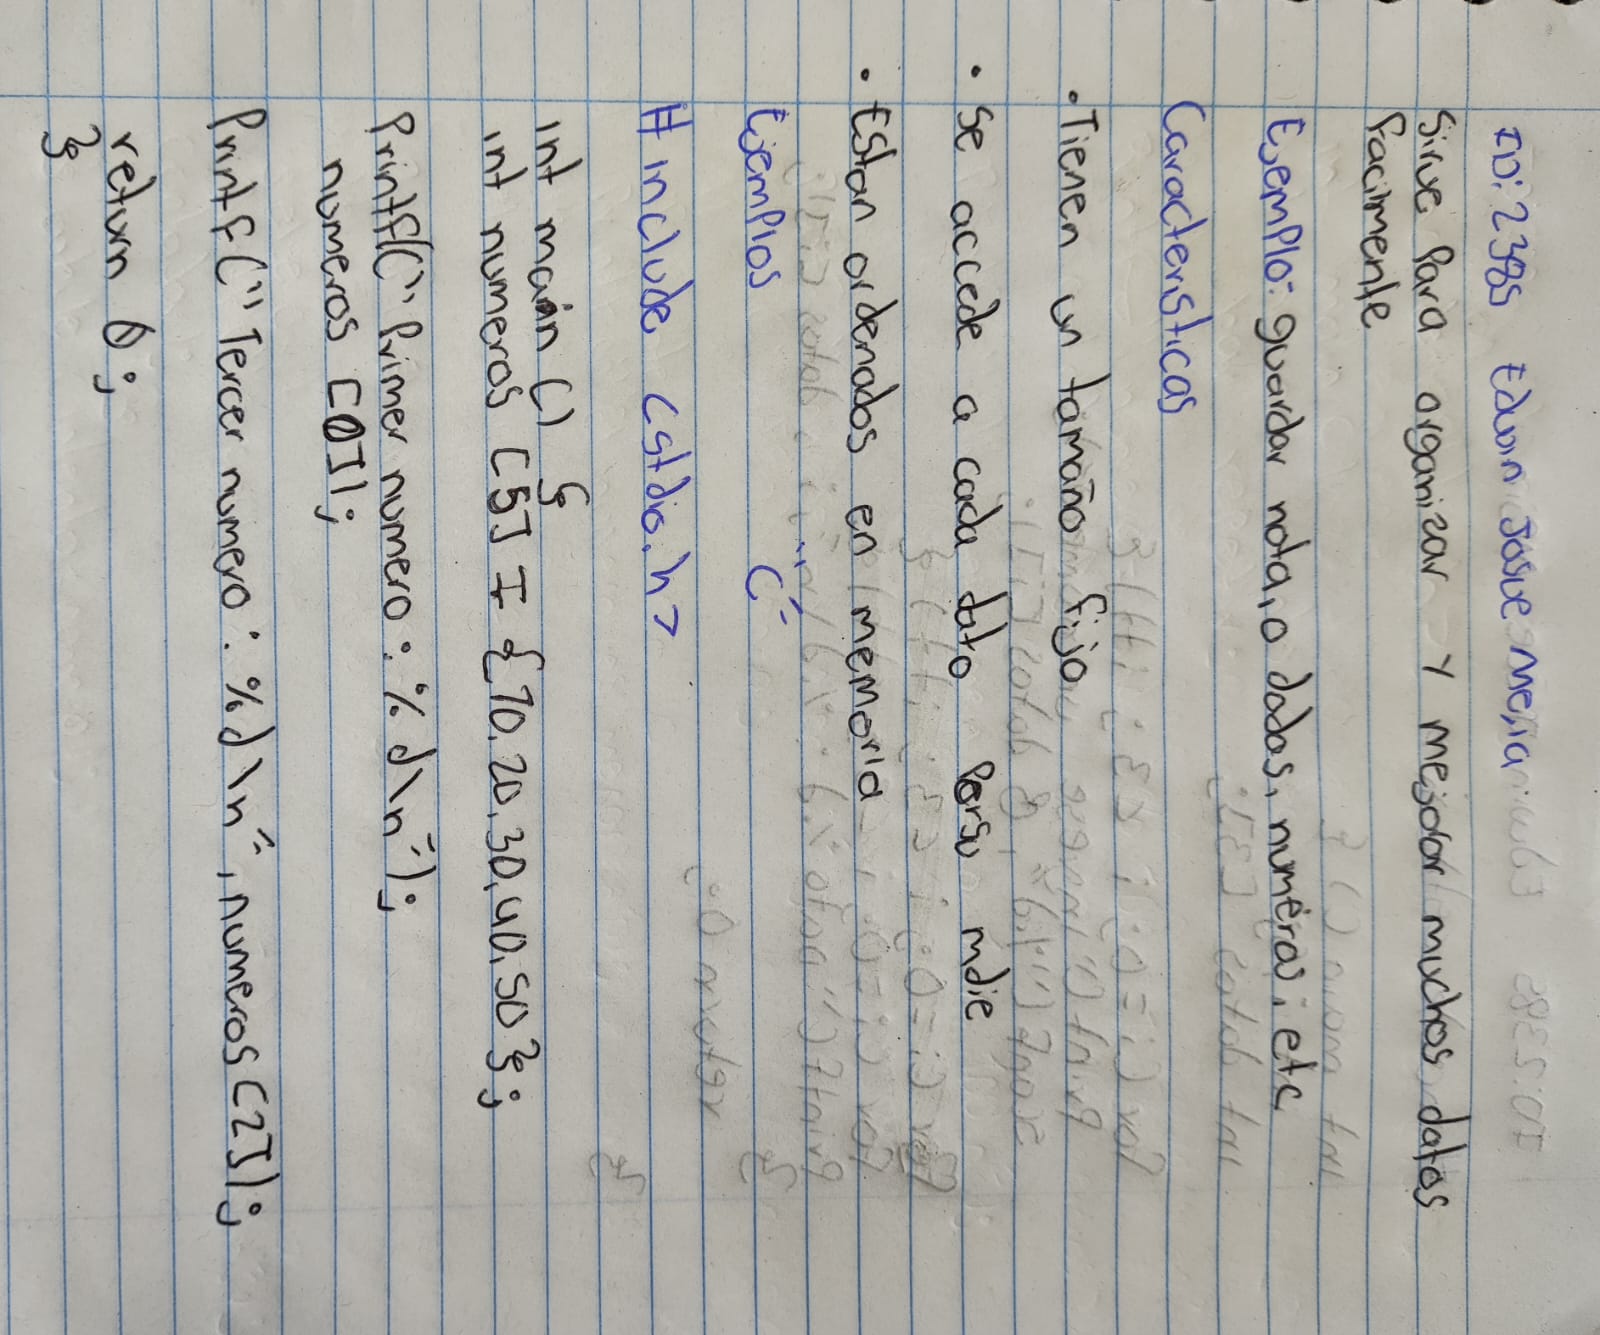 ID: 2385 Edwin Josue Mejia
Sirve Para organizar Y mejorar muchos datos
Facilmente
Ejemplo: guardar nota, o dados, numeros, etc
Caracteristicas
• Tienen un tamaño fijo
• Se accede a cada dato Porsu indie
• Estan ordenados en memoria
Ejemplos "C"
# include <stdio.h>
int main () {
int numeros [5] = {10, 20, 30, 40, 50};
Printf(" Primer numero : % d \n");
numeros [0]);
Printf(" Tercer numero : % d \n", numeros [2]);
return 0;
}